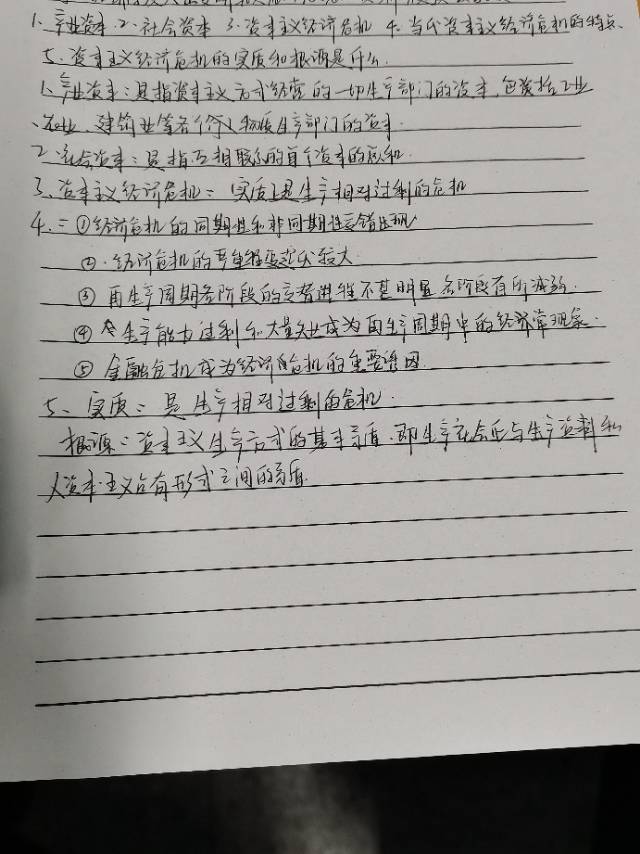 1. 产业资本 2. 社会资本 3. 资本主义经济危机 4. 当代资本主义经济危机的特点、
5. 资本主义经济危机的实质和根源是什么.
1、产业资本:是指资本主义方式经营的一切生产部门的资本,包括工业
、农业、建筑业等各个物质生产部门的资本.
2.社会资本:是指互相联系的单个资本的总和.
3、资本主义经济危机:实质上是生产相对过剩的危机
4.:①经济危机的周期性和非周期性交错出现
②.经济危机的严重程度起伏较大
③再生产周期各阶段的交替进程不甚明显各阶段有所减弱.
④生产能力过剩和大量失业成为再生产周期中的经济常现象.
⑤金融危机成为经济危机的重要诱因
5、实质:是生产相对过剩的危机.
根源:资本主义生产方式的基本矛盾.即生产社会化与生产资料私
人资本主义占有形式之间的矛盾.